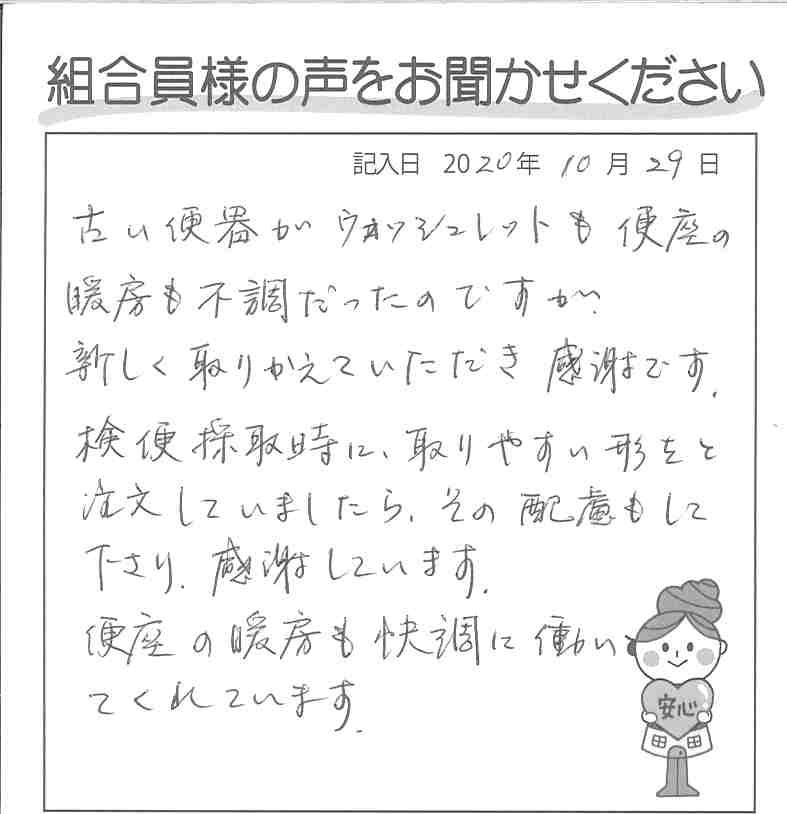 組合員様の声をお聞かせください
記入日 2020年 10月 29日
古い便器がウォッシュレットも便座の
暖房も不調だったのですが、
新しく取りかえていただき感謝です。
検便採取時に、取りやすい形をと
注文していましたら、その配慮もして
下さり、感謝しています。
便座の暖房も快調に働い
てくれています。
安心